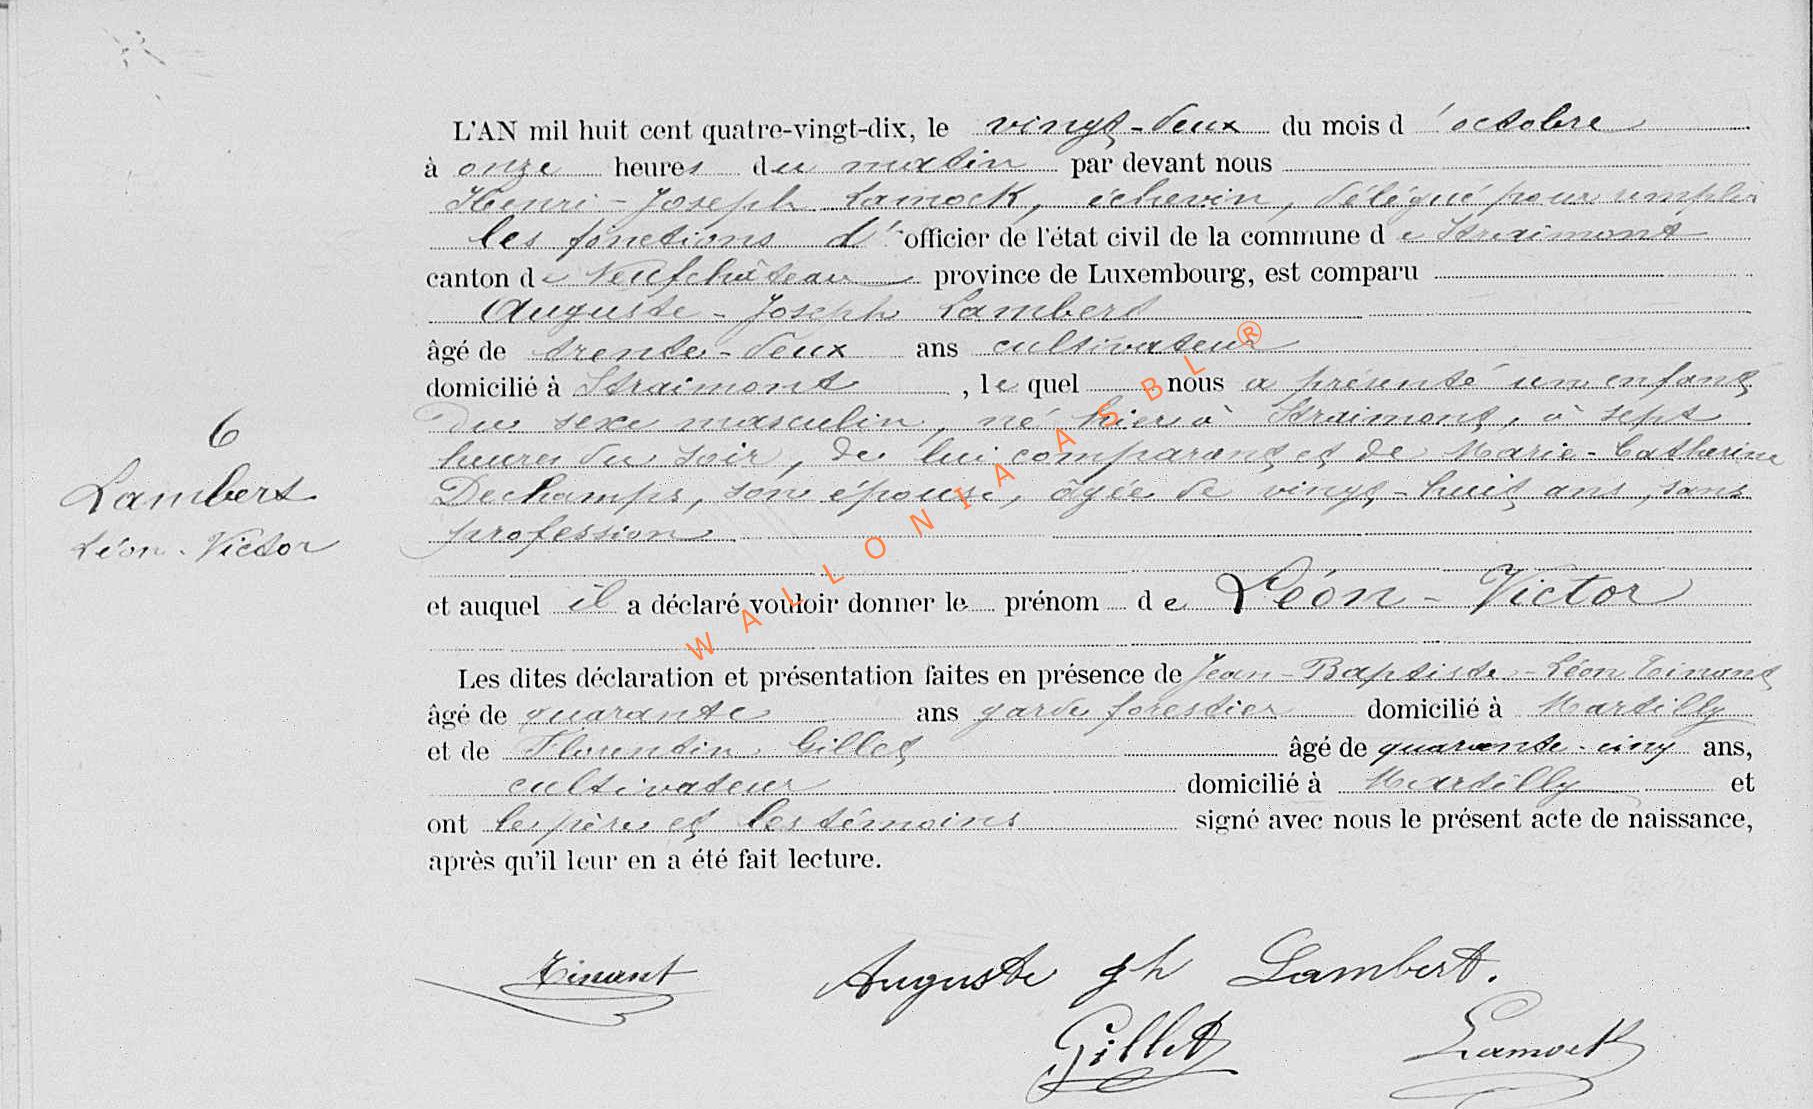 L'AN mil huit cent quatre-vingt-dix, le vingt-deux du mois d'octobre
à onze heures du matin par devant nous
Henri-Joseph Lamock, échevin, délégué pour remplir
les fonctions d'officier de l'état civil de la commune de Straimont
canton de Neufchâteau province de Luxembourg, est comparu
Auguste-Joseph Lambert
âgé de trente-deux ans cultivateur
domicilié à Straimont, lequel nous a présenté un enfant
du sexe masculin, né hier à Straimont, à sept
heures du soir, de lui comparant et de Marie-Catherine
Dechamps, son épouse, âgée de vingt-huit ans, sans
profession
et auquel il a déclaré vouloir donner le prénom de Léon-Victor
Les dites déclaration et présentation faites en présence de Jean-Baptiste-Léon Tinant
âgé de quarante ans garde forestier domicilié à Martilly
et de Florentin Gillet âgé de quarante-cinq ans,
cultivateur domicilié à Martilly et
ont le père et les témoins signé avec nous le présent acte de naissance,
après qu'il leur en a été fait lecture.
6
Lambert
Léon-Victor
Tinant Auguste Jh Lambert.
Gillet Lamock
WALLONIA ASBL ®